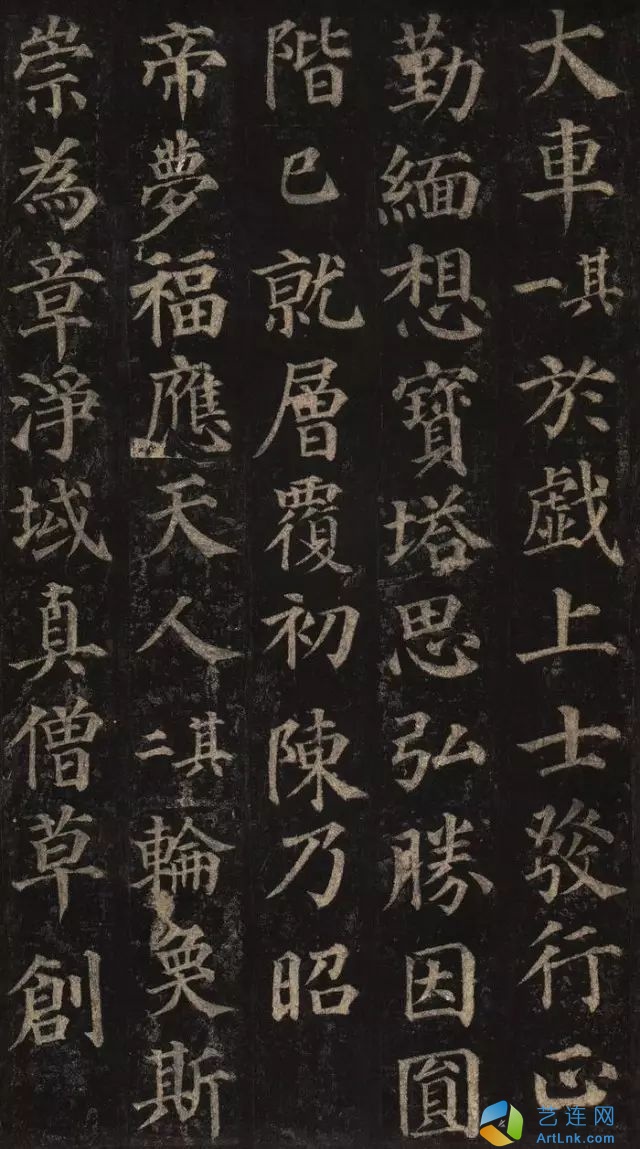 大車其一於戯上士發行正
勤緬想寶塔思弘勝因圓
階已就層覆初陳乃昭
帝夢福應天人其二輪奐斯
崇為章淨域真僧草創
艺连网
ArtLnk.com